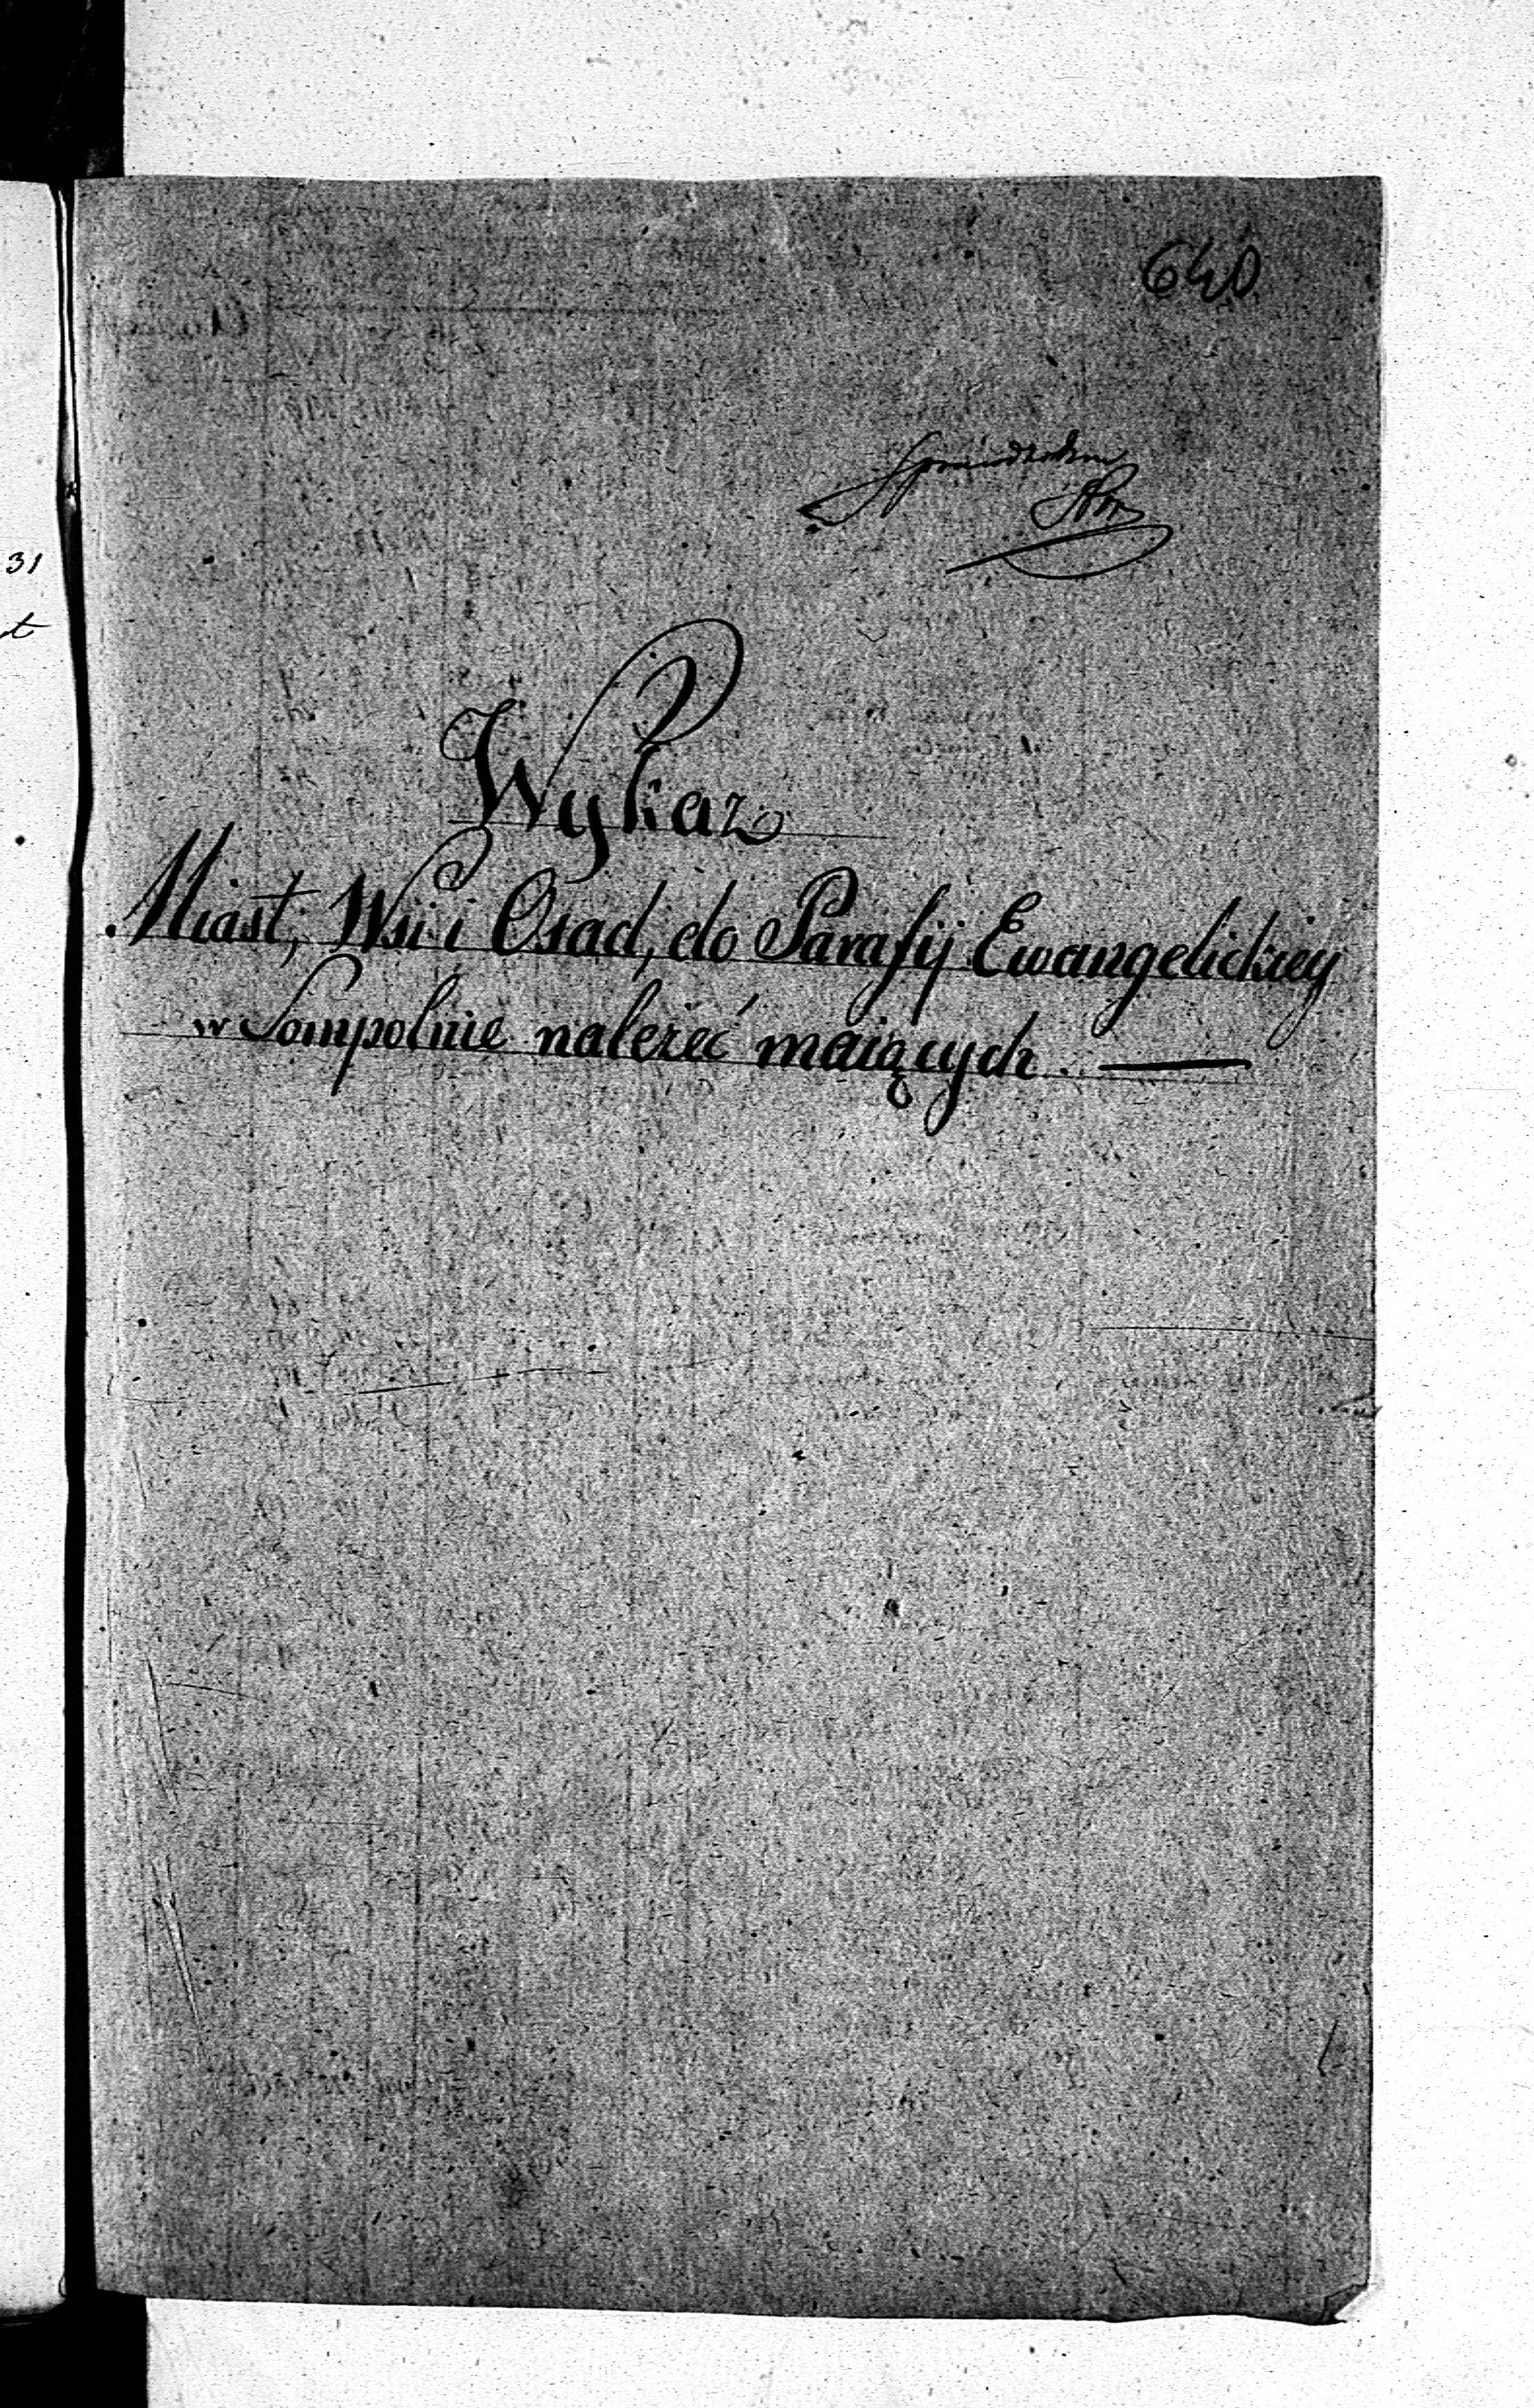 640
Wykaz
Miast, Wsi i Osad, do Parafij Ewangelickiey
w Sompolnie należeć maiących. —
31